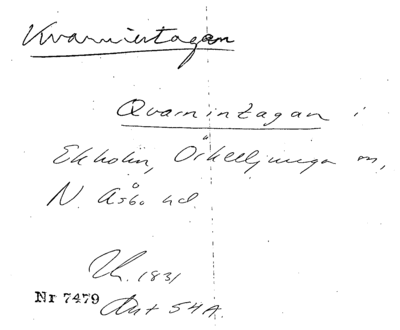 Kvarnintagan
Qvarnintagan i
Ekholm, Örkelljunga sn,
N. Åsbo hd.
1831
Nr 7479 Akt 54A.